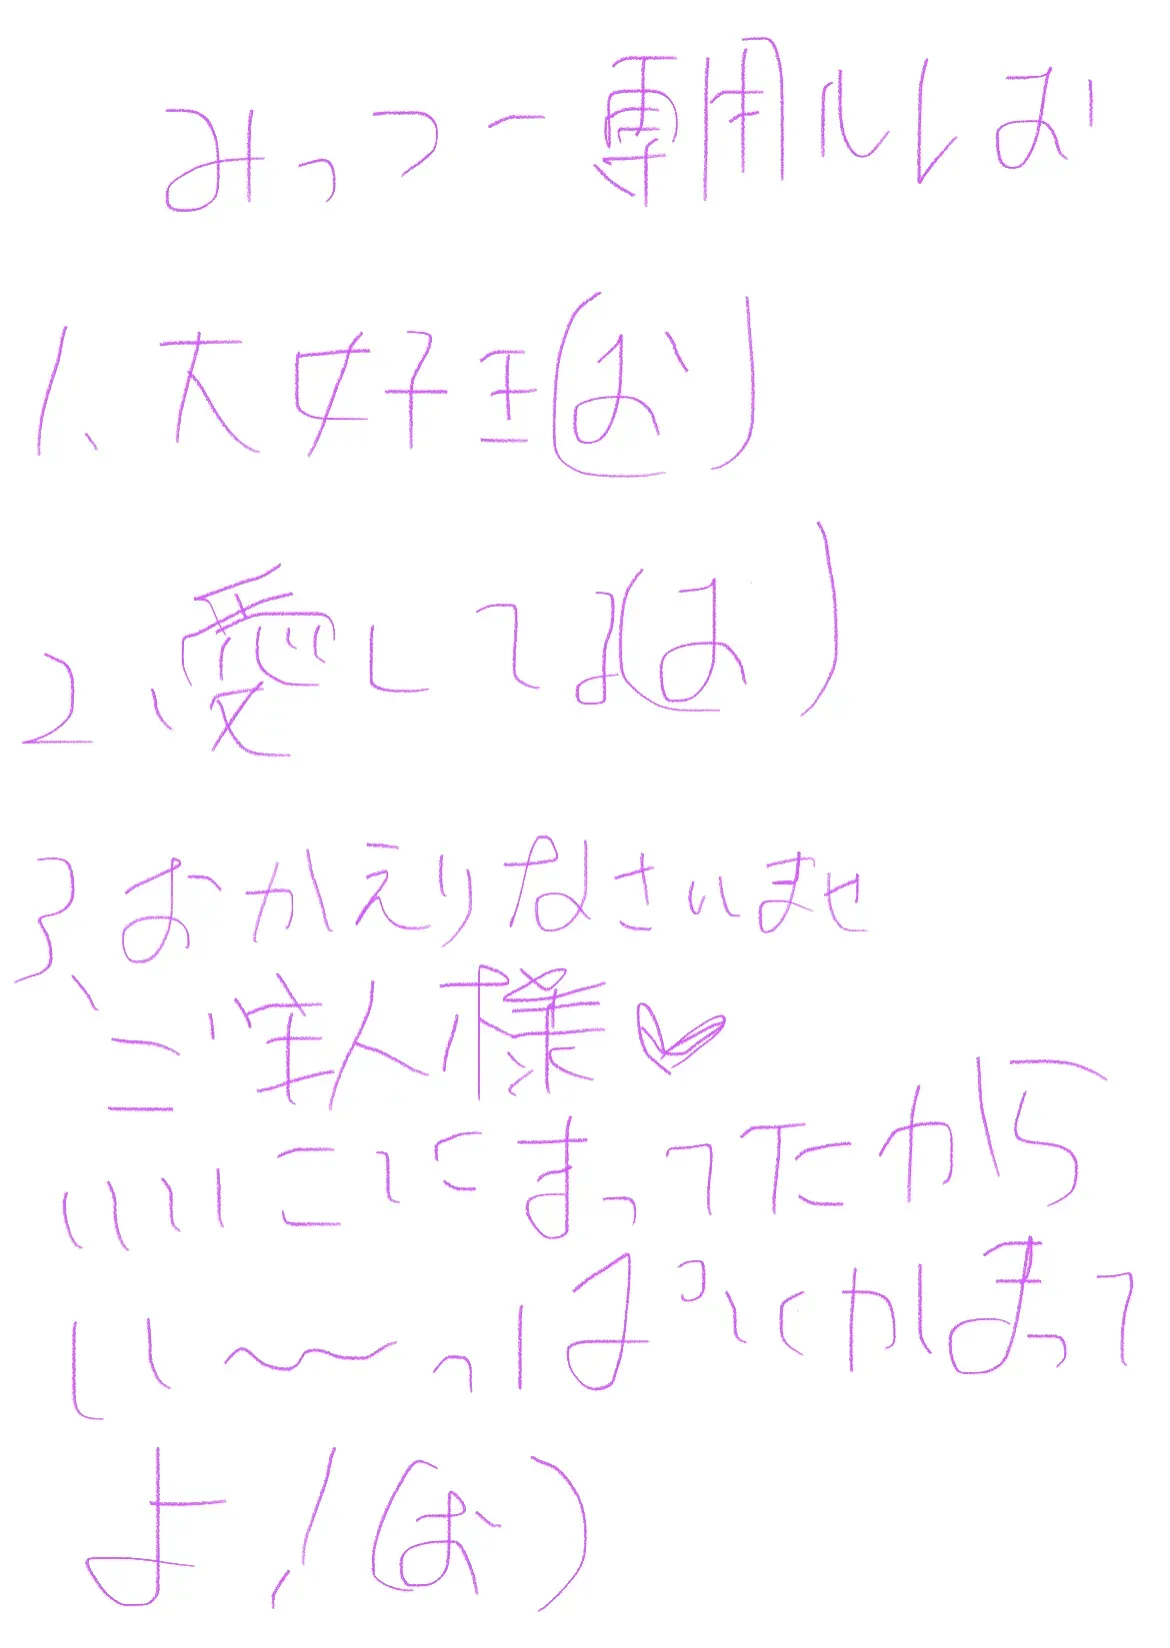 みっつー専用いいお
1、大好き(お)
2、愛してる(お)
3、おかえりなさいませ
ご主人様♡
いいこにまってたから
い〜っぱいかまって
よ!(お)